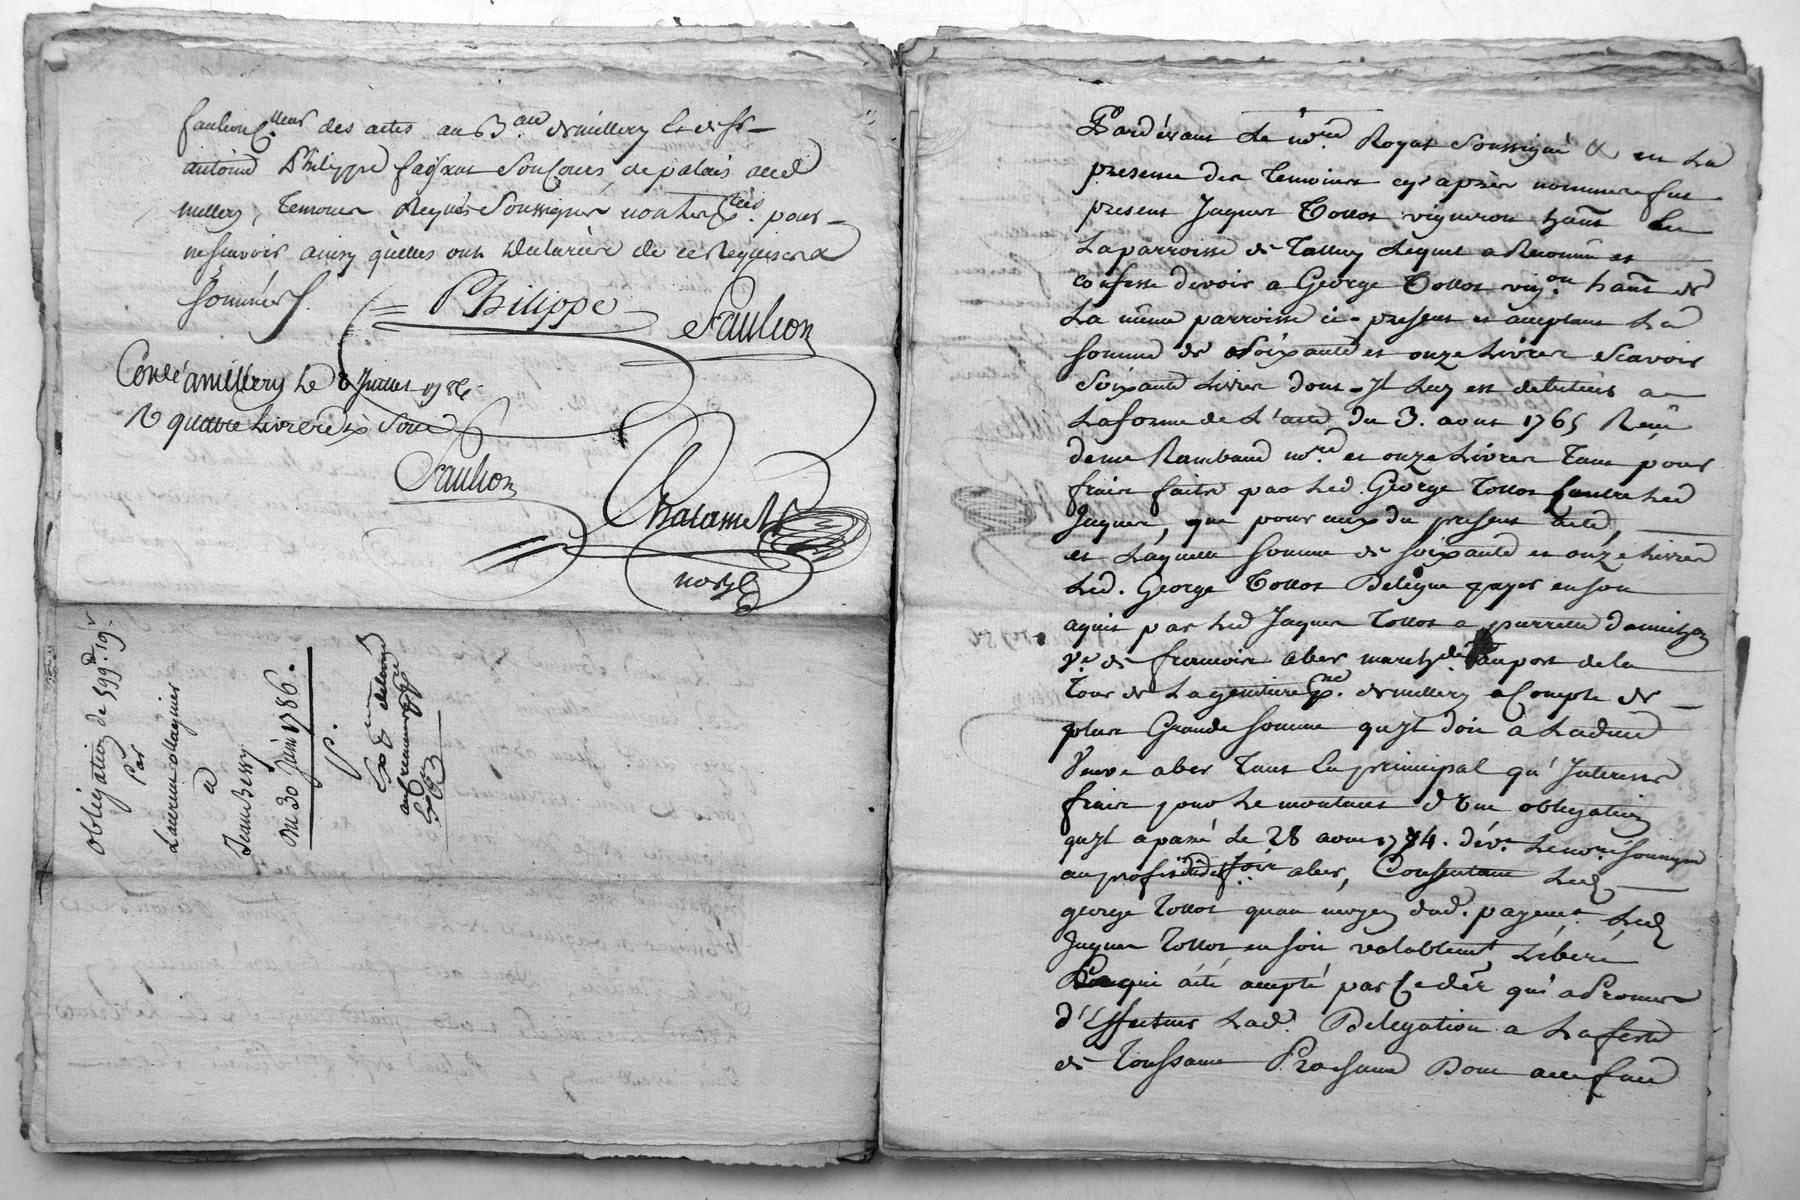 des actes au B.au de millery et de Sr
antoine Philippe faisant son Cours de palais aud
millery, Temoins Requis Soussignés non les pties. pour
ne scavoir ainsy qu'elles ont declaré de ce Requises &
sommées.
Philippe
Saulion
Conlé a millery Le 8 Juillet 1786
R quatre Livres dix Sous
Saulion
Chatanul
nore
obligation de 599tt. 19s
Par
Laurent ollagnier
a
Jean Bessy
Du 30 Juin 1786.
Pardévant Le nore. Royal Soussigné & en La
presence des Temoins cy après nommés fut
present Jaques Tollot vigneron hant. en
La parroisse de Talluy Lequel a Reconnu et
confessé devoir a George Tollot vigon hant de
La même parroisse ci-present et acceptant La
somme de Soixante et onze Livres Scavoir
Soixante Livres dont Il Luy est debiteur a
La forme de L'acte du 3. aout 1765 Reçu
de me Rambaud nore et onze Livres Tant pour
frais faits par Led. George Tollot contre Led
Jaques, que pour ceux du present acte,
et Laquelle somme de soixante et onze Livres
Led. George Tollot Delegue payer en son
aquit par Led Jaques Tollot a pierrette
Ve de francois aber marchd. au port de la
Tour de La gpe. de millery a Compte de
plus Grande somme qu'Il doit à Ladite
Veuve aber Tant En principal qu'Interets
frais pour Le montant d'Une obligation
qu'Il a passé Le 28 avril 1784. dévt Le nore soussigné
au profit dud. aber, Consentant Led
george Tollot qu'au moyen dud. payemt. Led
Jaques Tollot en soit valablemt Libéré
Ce qui a été accepté par Ce der qui a Promis
d'Effectuer Lade. Delegation a La feste
de Toussaint Prochaine Dont acte fait